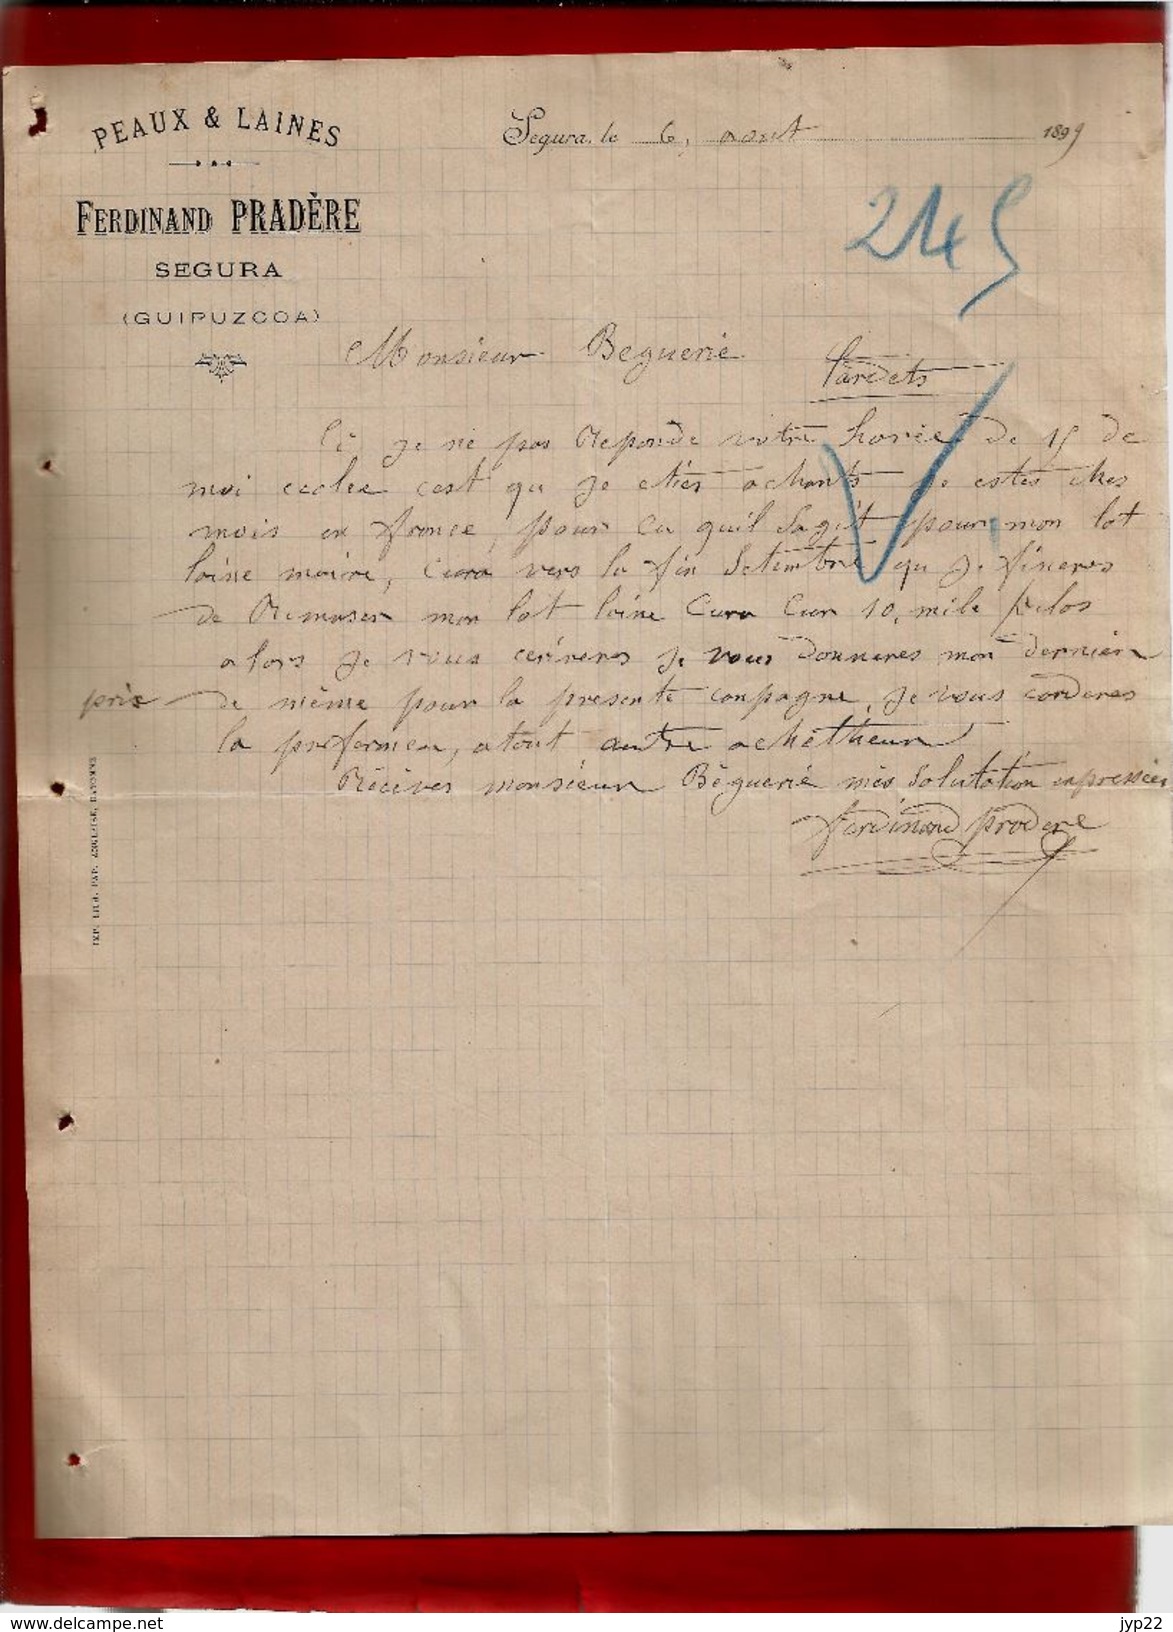 PEAUX & LAINES
FERDINAND PRADÈRE
SEGURA
(GUIPUZCOA)
Segura, le 6, aout 1899
245
Monsieur Beguerie
Tardets
Ci je ne pas Reponde votre de 15 de
moi cest qu je eties je estes ches
mois en france, pour Cu quil Sagit pour mon lot
laine maire, Cura vers la fin Setembre qu je fineres
de Ramaser mon lot laine Cura Cur 10, mile kilos
alors je vous ceriveres je vous donneres mon dernier
prix de même pour la presente conpagne, je vous corderes
la, atout autre achetheur
Récives monsieur Béguerie mes Solutation enpressées
ferdinand pradere
IMP. LILO. PAP. ANGLAISE, BAYONNE
www.delcampe.net
jyp22